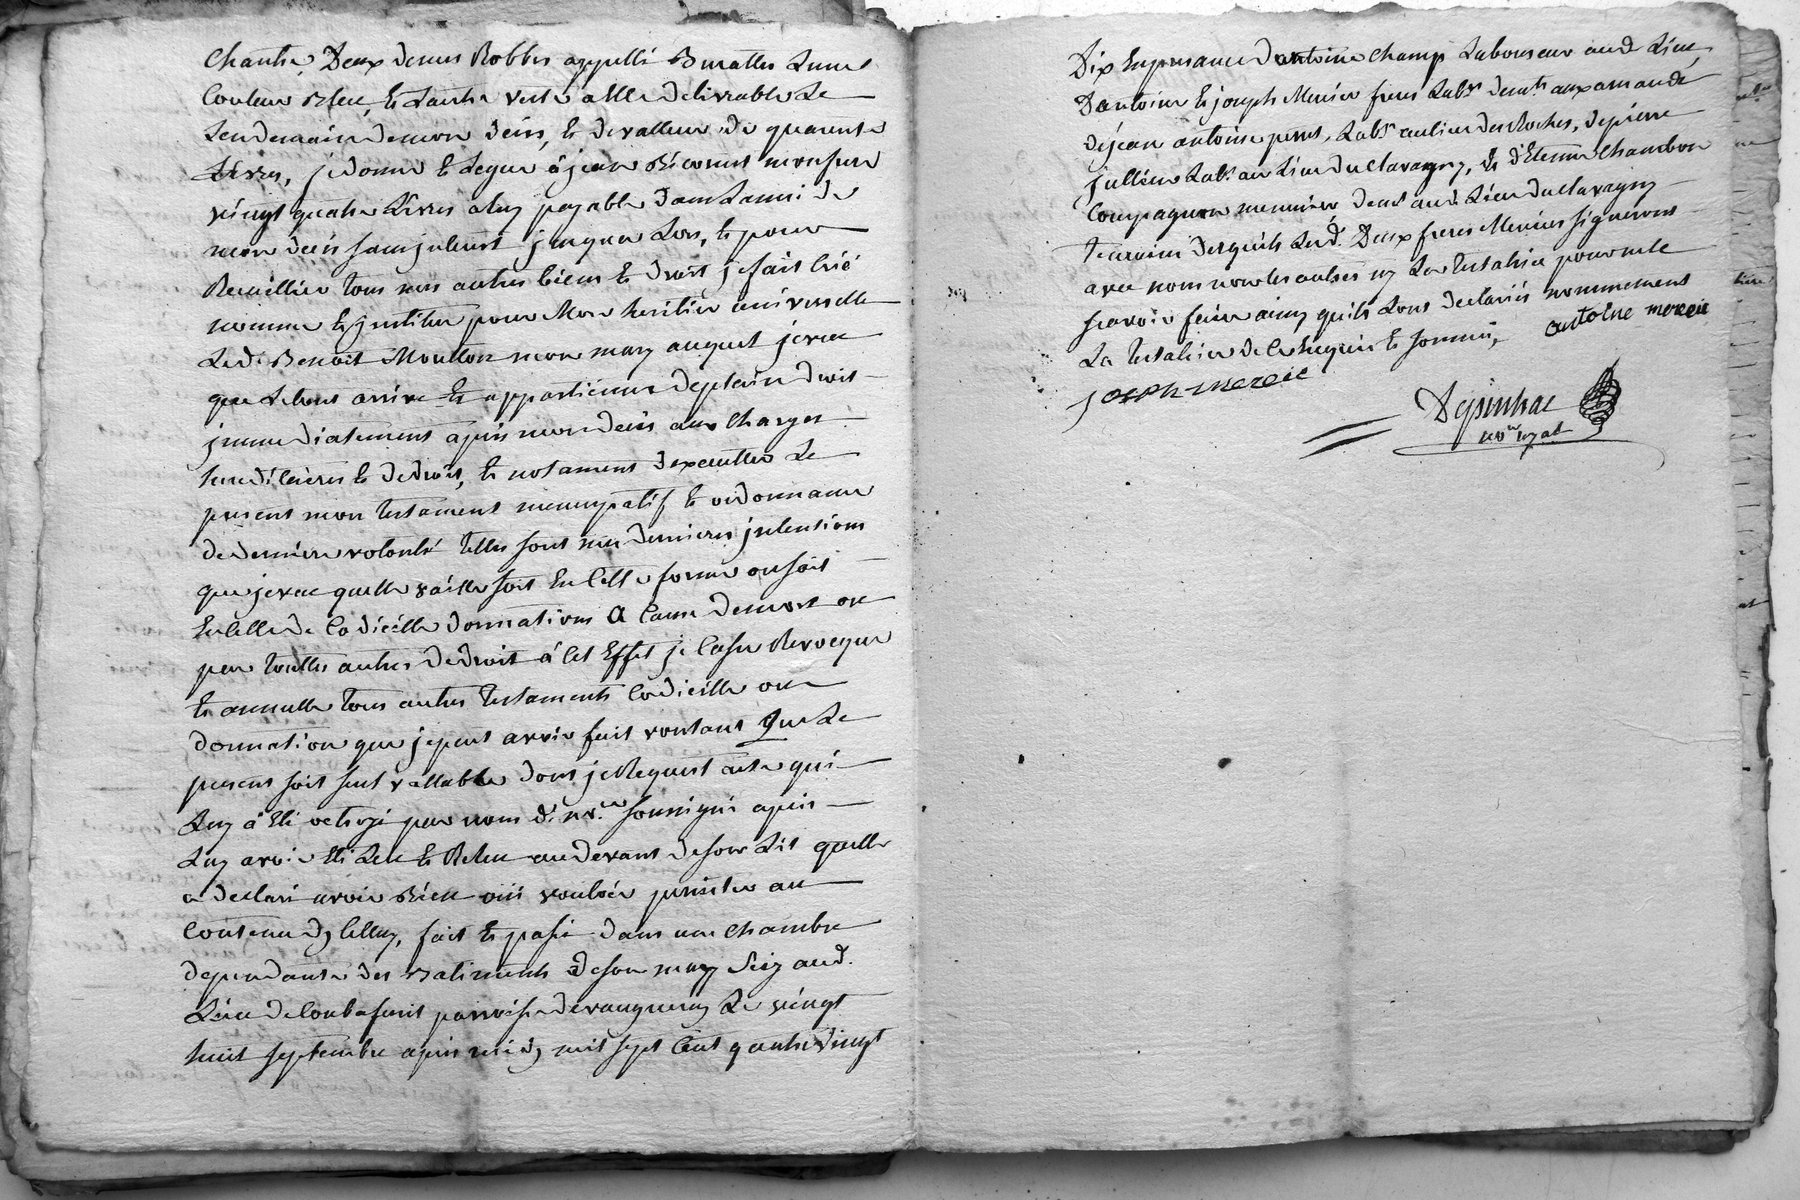 Chantre, Deux de mes Robbes appellé Buratter Lune
Couleur Bleu, et Lautre verte a Elle delivrable Le
Lendemain de mon deces, et de valleur de quarente
Livres, je donne et Legue à jean
vingt quatre Livres a luy payable dans Lanné de
mon deces sans interest jusques Lors, et pour
Recuillir tous mes autres biens et droit je fait Crée
nomme et jnstitue pour Mon heritier universelle
Led. Benoit Moulton mon mary auquel je veu
que le tout arrive et appartienne de plain droit
jmmediatement apres mon deces aux Charges
hereditaires et de droit, et notament dexecutter Le
present mon testament nuncupatif et ordonnance
de derniere volonté telles sont mes dernieres jntentions
que je veu quelle vaille soit En Cette forme ou soit
En Celle de Codicille donnations a Cause de mort ou
par toutte autres de droit à Cet Effet je Casse Revoque
et annulle tous autres testaments Codicille ou
donnation que je peut avoir fait voulant que Le
present soit seul vallable dont je Requert acte qui
Luy à Eté octroyé par nous d. nore soussigné apres
Luy avoir Eté Leu et Releu au devant de son Lit quelle
a declaré avoir Bien oüi vouloir persister au
Contenu dy Celluy, fait et passé dans une chambre
dependante des Batiments de son mary Sizz aud.
Lieu de parroisse de vaugneray Le vingt
huit septembre apres midy mil sept Cent quatre vingt
Dix En presance dantoine champ Laboureur aud Lieu,
dantoine et joseph Mercier freres Labrs demts
de jean antoine Labr au lieu des Roches, de pierre
jullien Labr au Lieu du Clavagny, et d'Etienne chambon
Compagnon meunier demt aud. Lieu du Clavagny
temoins desquels Lesd. Deux freres Mercier signeront
avec nous non les autres ny La testatrice pour ne le
scavoir faire ainsy quils Lont declarés nommement
La testatrice de ce Enquis et sommé, antoine mercie
joseph mercie
Depinhac
nore royal